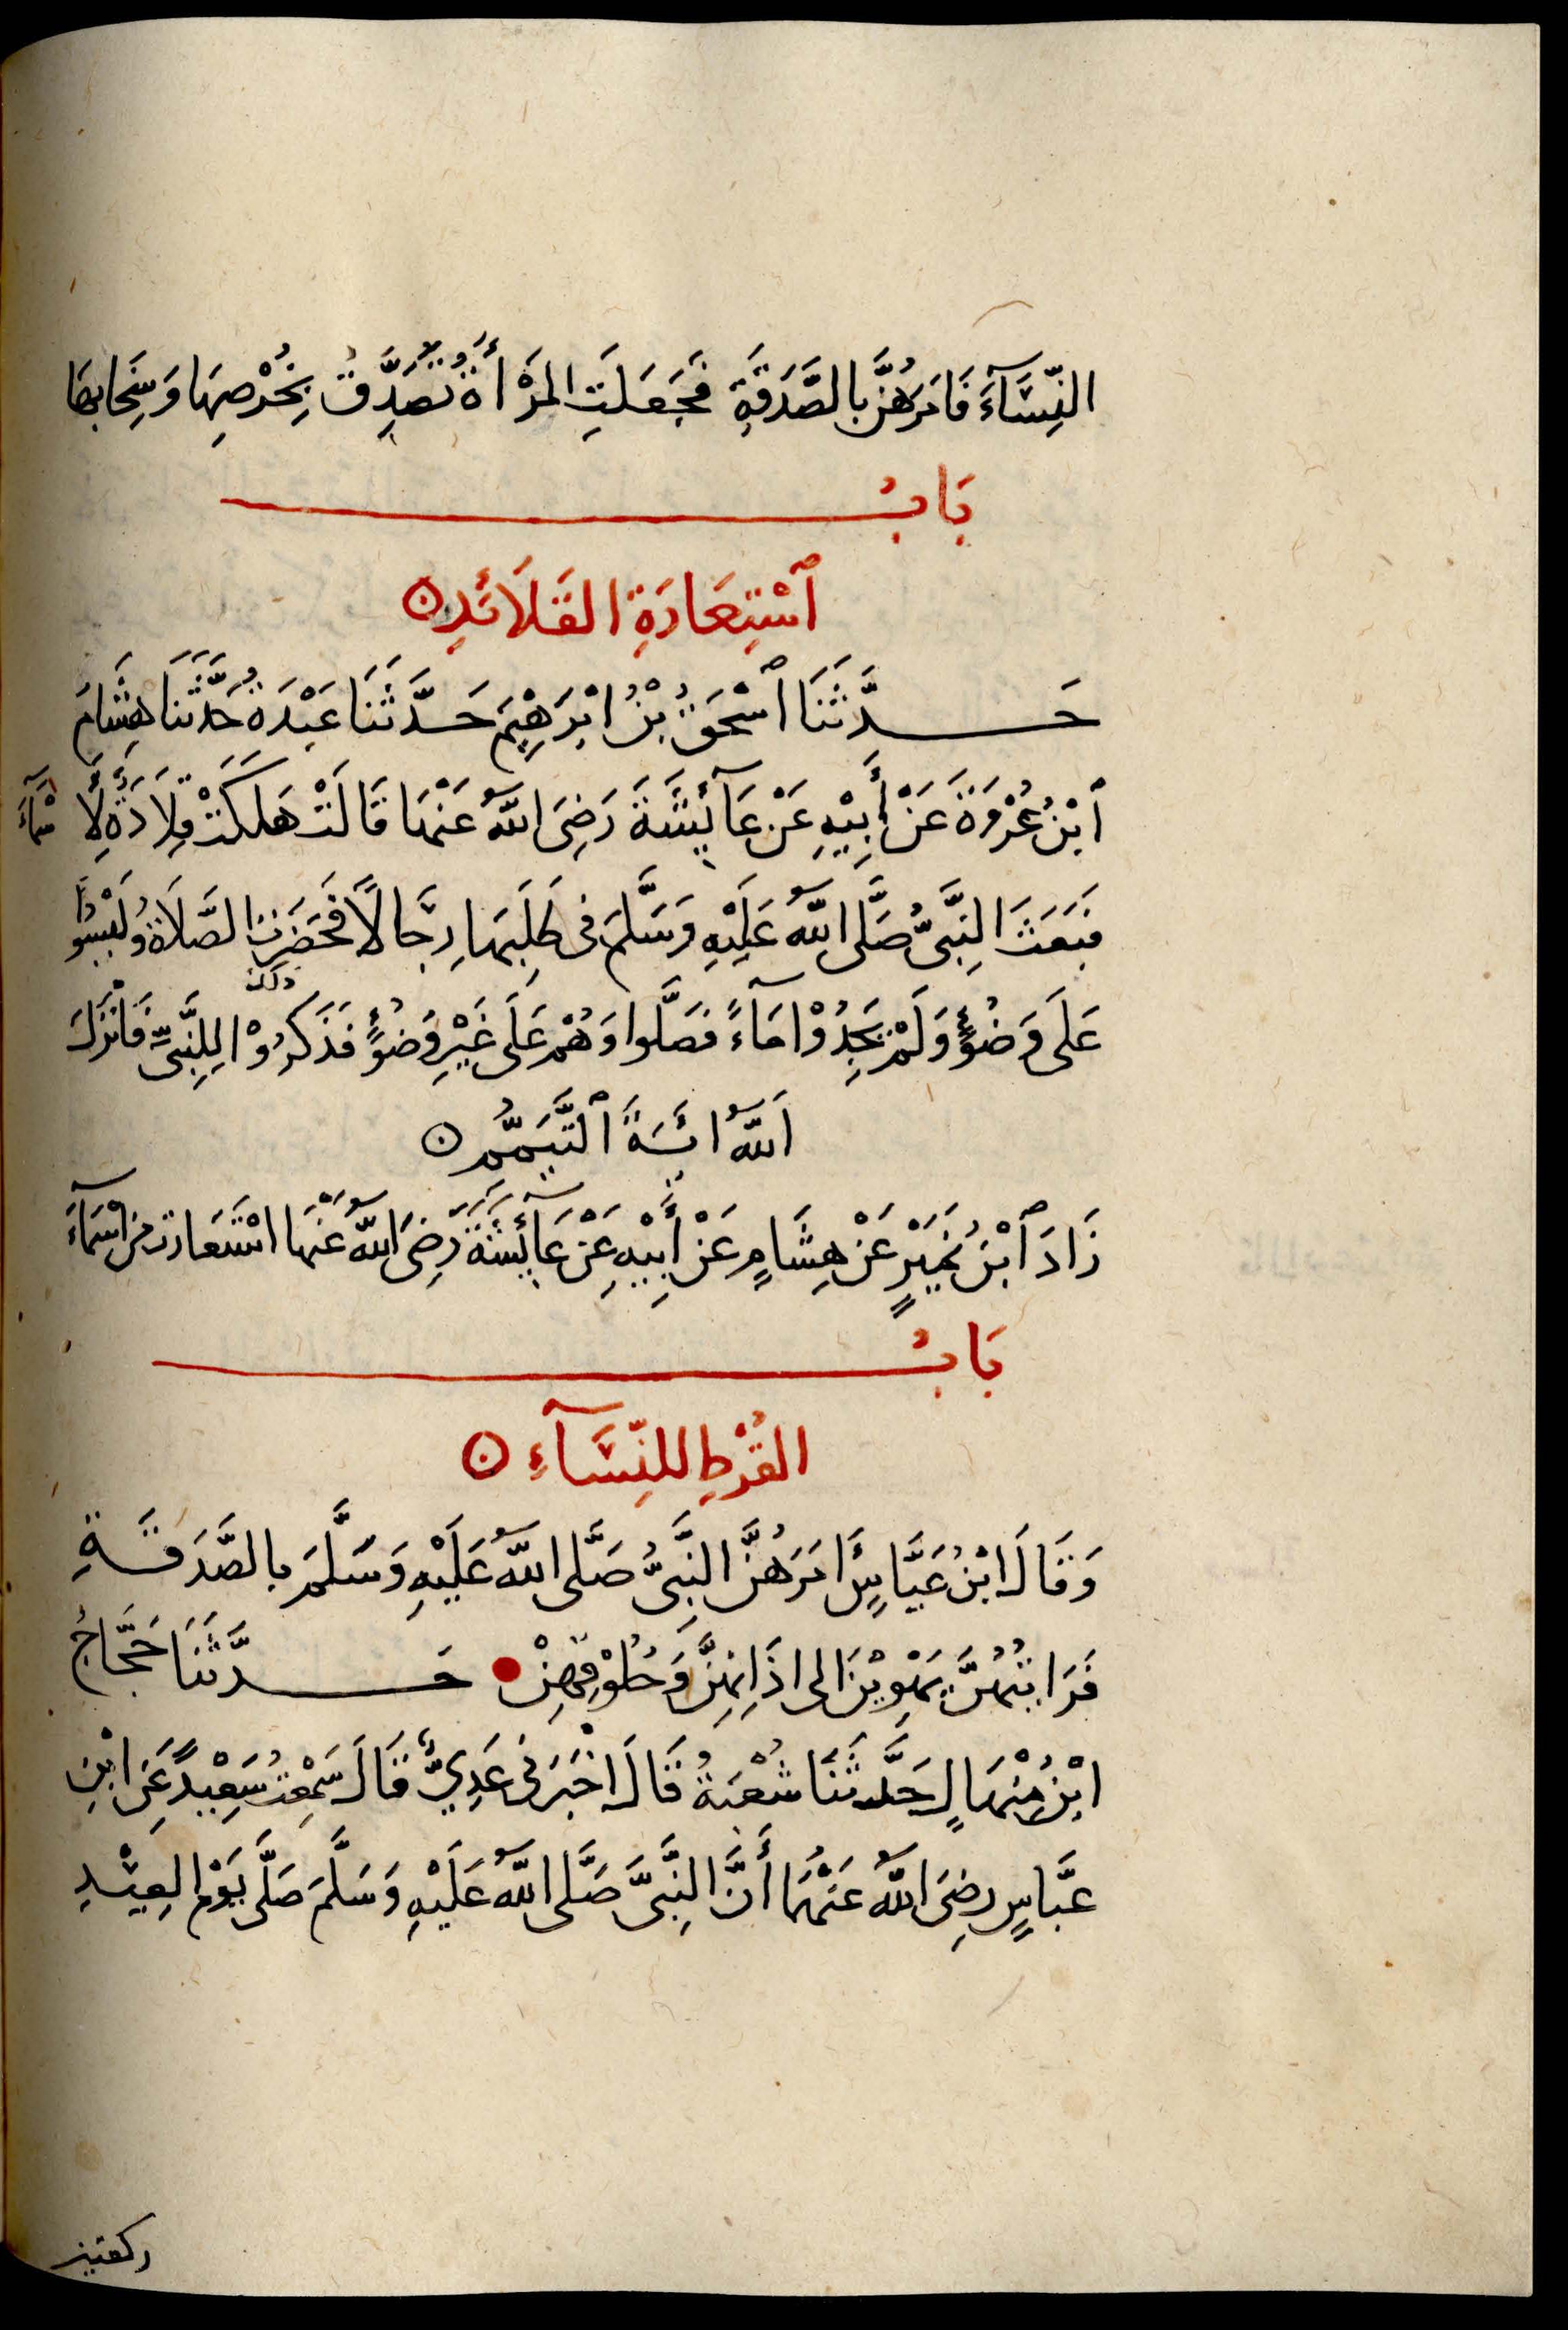 النِّسَآءَ فَامَرَهُنَّ بِالصَّدَقَةِ فَجَعَلَتِ المَرْأَةُ تَصَدَّقُ بِخُرْصِهَا وَسِخَابِهَا
بَابُ
ٱسْتِعَارَةِ القَلَائَدِ
حَدَّثَنَا ٱسْحَقُ بْنُ ابْرَهِيْمَ حَدَّثَنَا عَبْدَةُ حَدَّثَنَا هِشَامُ
ٱبْنُ عُرْوَةَ عَنْ أَبِيْهِ عَنْ عَآئِشَةَ رَضِىَ اللّٰهُ عَنْهَا قَالَتْ هَلَكَتْ قِلَادَةٌ لِأَسْمَآءَ
فَبَعَثَ النَّبِىُّ صَلَّى اللّٰهُ عَلَيْهِ وَسَلَّمَ فى طَلَبِهَا رِجَالًا فَحَضَرَتِ الصَّلَاةُ وَلَيْسُوا
عَلَى وَضُوْءٍ وَلَمْ يَجِدُوْا مَاءً فَصَلَّوا وَهُمْ عَلَى غَيْرِ وَضُوْءٍ فَذَكَرُوْا ذلك لِلنَّبِىِّ فَانْزَلَ
اَللّٰهُ ائَيَةَ ٱلتَّيَمُّمِ
زَادَ ٱبْنُ نُمَيْرٍ عَنْ هِشَامٍ عَنْ أَبِيْهِ عَنْ عَآئِشَةَ رَضِىَ اللّٰهُ عَنْهَا اسْتَعَارَت مِن اسْمَآءَ
بَابُ
القُرْطِ لِلنِّسَآءِ
وَقَالَ ابْنُ عَبَّاسٍ أَمَرَهُنَّ النَّبِىُّ صَلَّى اللّٰهُ عَلَيْهِ وَسَلَّمَ بِالصَّدَقَةِ
فَرَايْتُهُنَّ يَهْوِيْنَ الى اذَانِهِنَّ وَحُلُوْقِهِنْ حَدَّثَنَا حَجَّاجُ
ابْنُ مِنْهَالٍ حَدَّثَنَا شُعْبَةُ قَالَ اخْبَرَنى عَدِيٌّ قَالَ سَمِعْتُ سَعِيْدً عَنِ ابْنِ
عَبَّاسٍ رضِىَ اللّٰهُ عَنْهُمَا أَنَّ النَّبِىَّ صَلَّى اللّٰهُ عَلَيْهِ وَسَلَّمَ صَلَّى يَوْمَ العِيْدِ
ركعتين